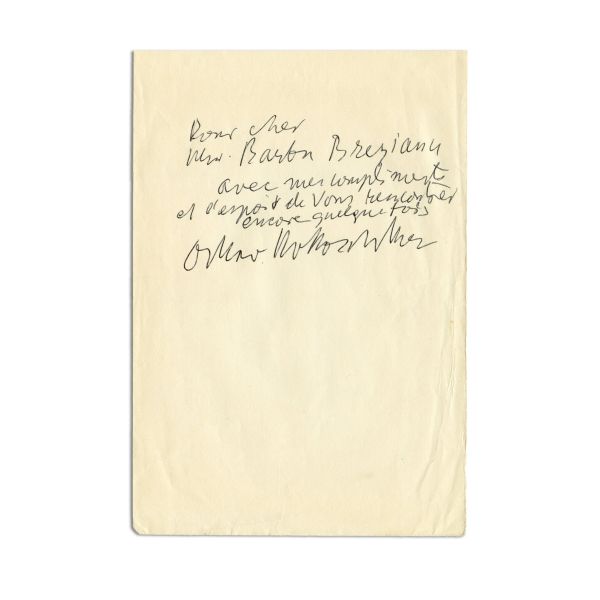 Pour cher
Mr. Barbu Brezianu
avec mes compliments
et d'espoir de Vous rencontrer
encore quelque fois
Oskar Kokoschka